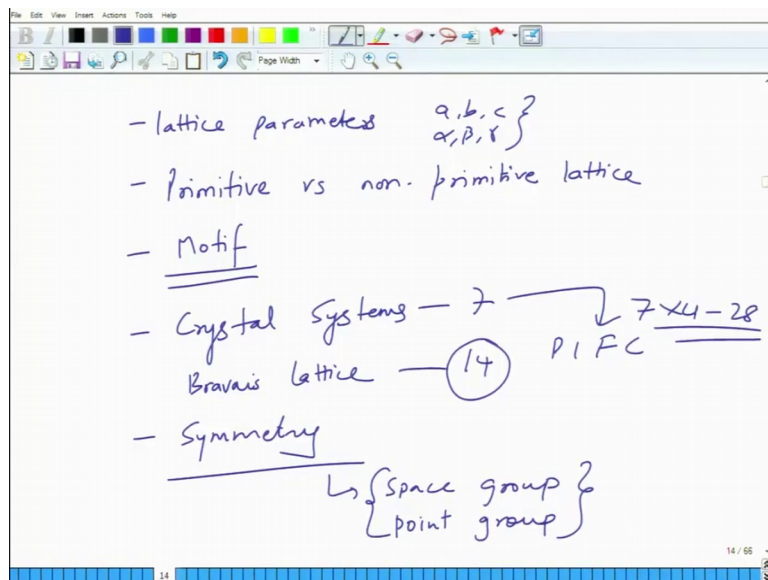 File Edit View Insert Actions Tools Help
B I
Page Width
- lattice parameters a, b, c }
α, β, γ
- Primitive vs non-primitive lattice
- Motif
- Crystal Systems - 7 7 x 4 - 28
P I F C
Bravais lattice - 14
- Symmetry
↳ { space group }
point group
14 / 66
14